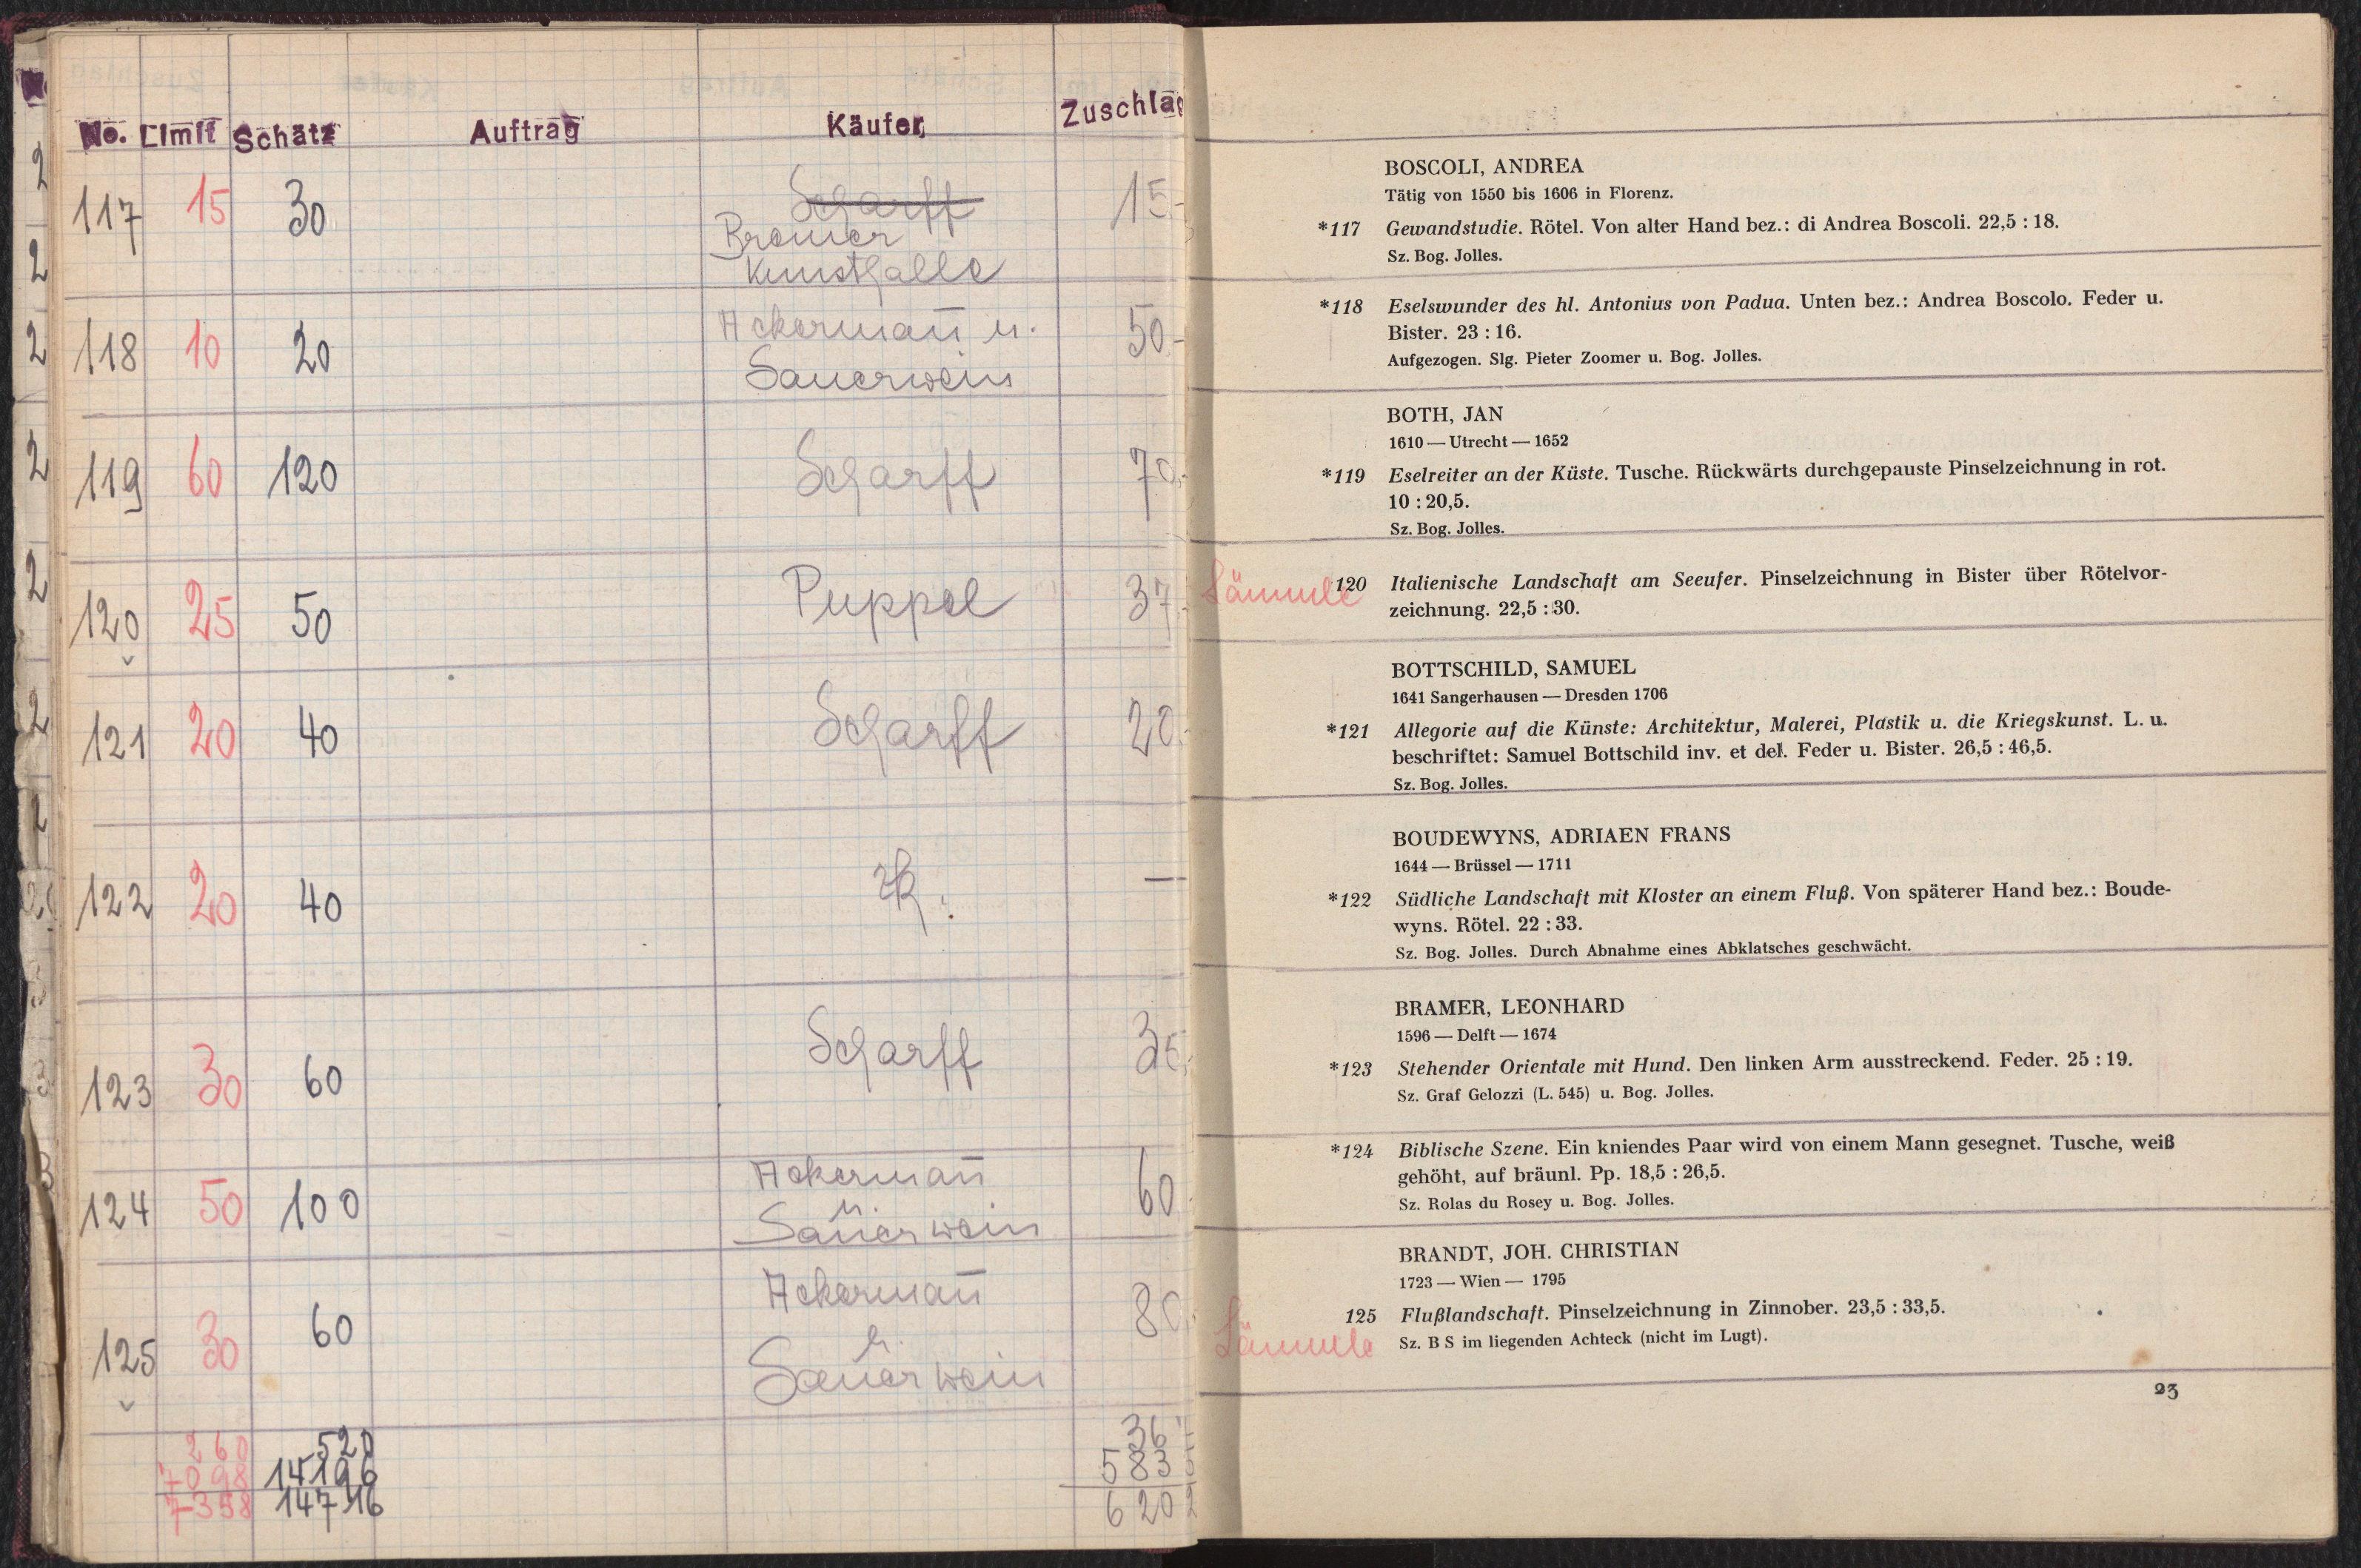 No. Limit Schätz Auftrag Käufer Zuschlag
117 15 30 Scharff 15.-
Bremer
Kunsthalle
118 10 20 Ackermañ u. 50.-
Sauerwein
119 60 120 Scharff 70.-
120 25 50 Puppel 37.-
121 20 40 Scharff 20.-
122 20 40 —
123 30 60 Scharff 35.-
124 50 100 Ackermañ 60
u.
Sauerwein
125 30 60 Ackermañ 80.
u.
Sauerwein
260 520
7098 14196 5835
7358 14716 6202
BOSCOLI, ANDREA
Tätig von 1550 bis 1606 in Florenz.
*117 Gewandstudie. Rötel. Von alter Hand bez.: di Andrea Boscoli. 22,5 : 18.
Sz. Bog. Jolles.
*118 Eselswunder des hl. Antonius von Padua. Unten bez.: Andrea Boscolo. Feder u.
Bister. 23 : 16.
Aufgezogen. Slg. Pieter Zoomer u. Bog. Jolles.
BOTH, JAN
1610 — Utrecht — 1652
*119 Eselreiter an der Küste. Tusche. Rückwärts durchgepauste Pinselzeichnung in rot.
10 : 20,5.
Sz. Bog. Jolles.
Lämmle 120 Italienische Landschaft am Seeufer. Pinselzeichnung in Bister über Rötelvor-
zeichnung. 22,5 : 30.
BOTTSCHILD, SAMUEL
1641 Sangerhausen — Dresden 1706
*121 Allegorie auf die Künste: Architektur, Malerei, Plastik u. die Kriegskunst. L. u.
beschriftet: Samuel Bottschild inv. et del. Feder u. Bister. 26,5 : 46,5.
Sz. Bog. Jolles.
BOUDEWYNS, ADRIAEN FRANS
1644 — Brüssel — 1711
*122 Südliche Landschaft mit Kloster an einem Fluß. Von späterer Hand bez.: Boude-
wyns. Rötel. 22 : 33.
Sz. Bog. Jolles. Durch Abnahme eines Abklatsches geschwächt.
BRAMER, LEONHARD
1596 — Delft — 1674
*123 Stehender Orientale mit Hund. Den linken Arm ausstreckend. Feder. 25 : 19.
Sz. Graf Gelozzi (L. 545) u. Bog. Jolles.
*124 Biblische Szene. Ein kniendes Paar wird von einem Mann gesegnet. Tusche, weiß
gehöht, auf bräunl. Pp. 18,5 : 26,5.
Sz. Rolas du Rosey u. Bog. Jolles.
BRANDT, JOH. CHRISTIAN
1723 — Wien — 1795
125 Flußlandschaft. Pinselzeichnung in Zinnober. 23,5 : 33,5.
Lämmle Sz. B S im liegenden Achteck (nicht im Lugt).
23